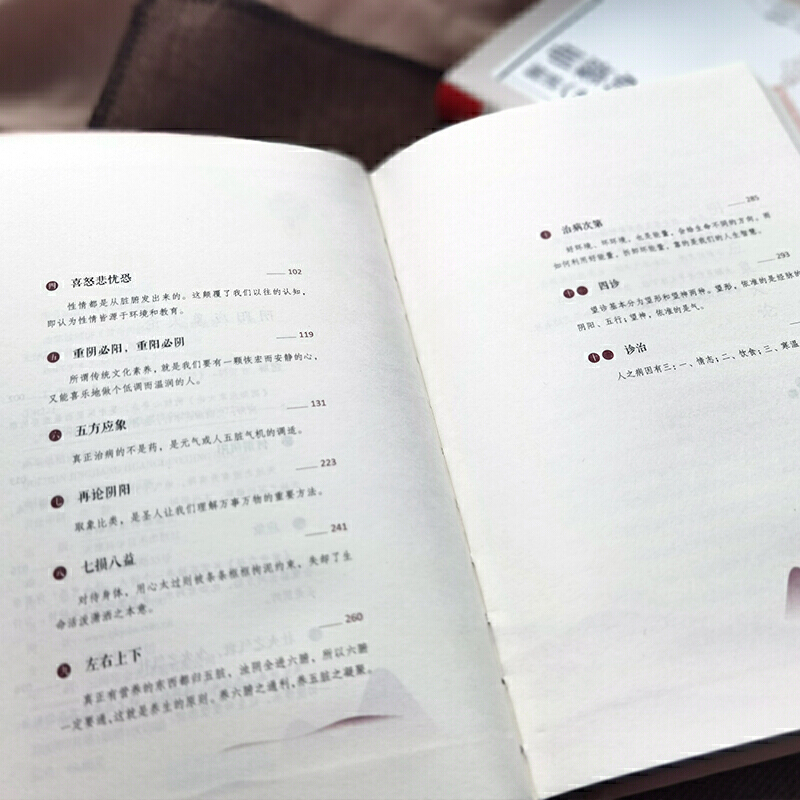 四 喜怒悲忧恐 ——102
性情都是从脏腑发出来的。这颠覆了我们以往的认知,
即认为性情皆源于环境和教育。
五 重阴必阳,重阳必阴 ——119
所谓传统文化素养,就是我们要有一颗恢宏而安静的心,
又能喜乐地做个低调而温润的人。
六 五方应象 ——131
真正治病的不是药,是元气或人五脏气机的调适。
七 再论阴阳 ——223
取象比类,是圣人让我们理解万事万物的重要方法。
八 七损八益 ——241
对待身体,用心太过则被条条框框拘泥约束,失却了生
命活泼潇洒之本意。
九 左右上下 ——260
真正有营养的东西都归五脏,浊阴全进六腑,所以六腑
一定要通,这就是养生的原则。养六腑之通利,养五脏之凝聚。
十 治病次第 ——285
好环境、坏环境,也是能量,会给生命不同的方向,而
如何利用好能量,拆卸坏能量,靠的是我们的人生智慧。
十一 四诊 ——293
望诊基本分为望形和望神两种。望形,依准的是经脉的
阴阳、五行;望神,依准的是气。
十二 诊治
人之病因有三:一、情志;二、饮食;三、寒温